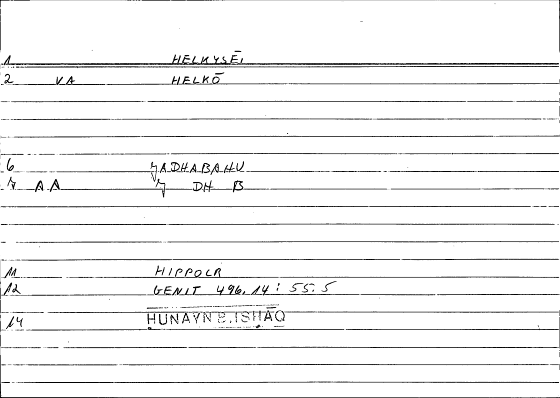 1 HELKYSĒI
2 VA HELKŌ
6 JADHABAHU
7 AA J DH B
11 HIPPOCR
12 GENIT 496.14 : 55.5
14 ḤUNAYN B.ISḤĀQ